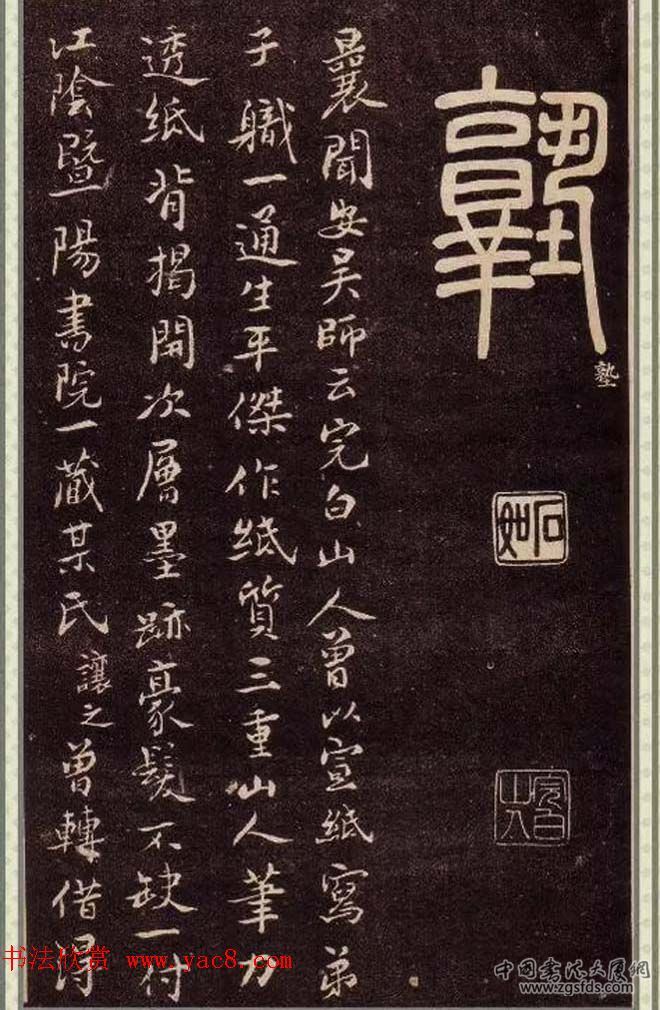 塾
塾
石如
完白山人
曩聞安吴師云完白山人曾以宣紙寫弟
子職一通生平傑作紙質三重山人筆力
透紙背揭開次層墨跡豪髮不缺一付
江陰暨陽書院一藏某氏讓之曾轉借得
书法欣赏 www.yac8.com
中国书法大展網
www.zgsfds.com